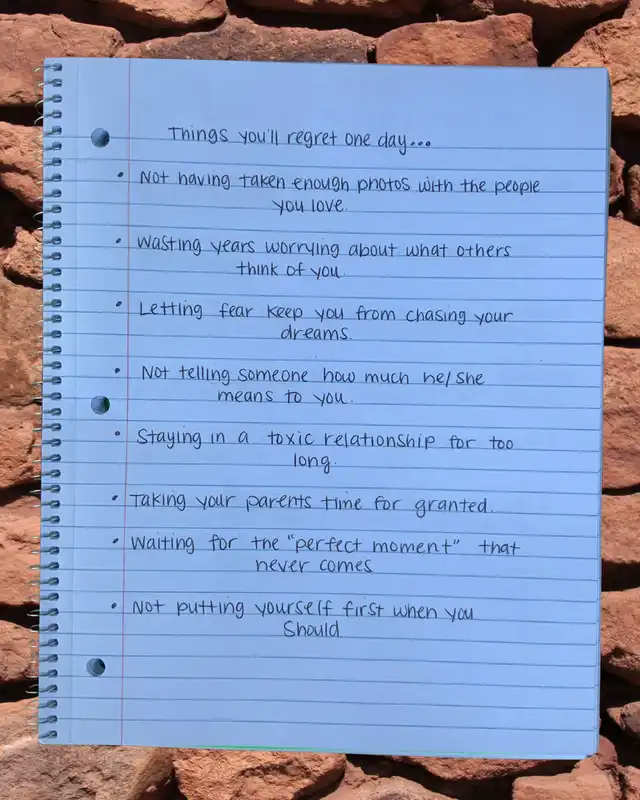 Things you'll regret one day...
• Not having taken enough photos with the people
you love.
• Wasting years worrying about what others
think of you
• Letting fear keep you from chasing your
dreams.
• Not telling someone how much he/she
means to you.
• Staying in a toxic relationship for too
long.
• Taking your parents time for granted.
• Waiting for the "perfect moment" that
never comes
• Not putting yourself first when you
should